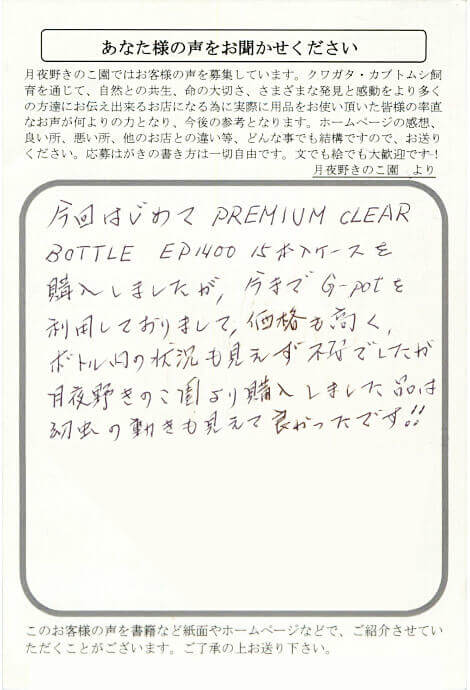 あなた様の声をお聞かせください
月夜野きのこ園ではお客様の声を募集しています。クワガタ・カブトムシ飼
育を通じて、自然との共生、命の大切さ、さまざまな発見と感動をより多く
の方達にお伝え出来るお店になる為に実際に用品をお使い頂いた皆様の率直
なお声が何よりの力となり、今後の参考となります。ホームページの感想、
良い所、悪い所、他のお店との違い等、どんな事でも結構ですので、お送り
ください。応募はがきの書き方は一切自由です。文でも絵でも大歓迎です!
月夜野きのこ園 より
今回はじめて PREMIUM CLEAR
BOTTLE EP1400 15本入ケースを
購入しましたが、今まで G-potを
利用しておりまして、価格も高く、
ボトル内の状況も見えず不安でしたが
月夜野きのこ園より購入しました品は
幼虫の動きも見えて良かったです!!
このお客様の声を書籍など紙面やホームページなどで、ご紹介させてい
ただくことがございます。ご了承の上お送り下さい。